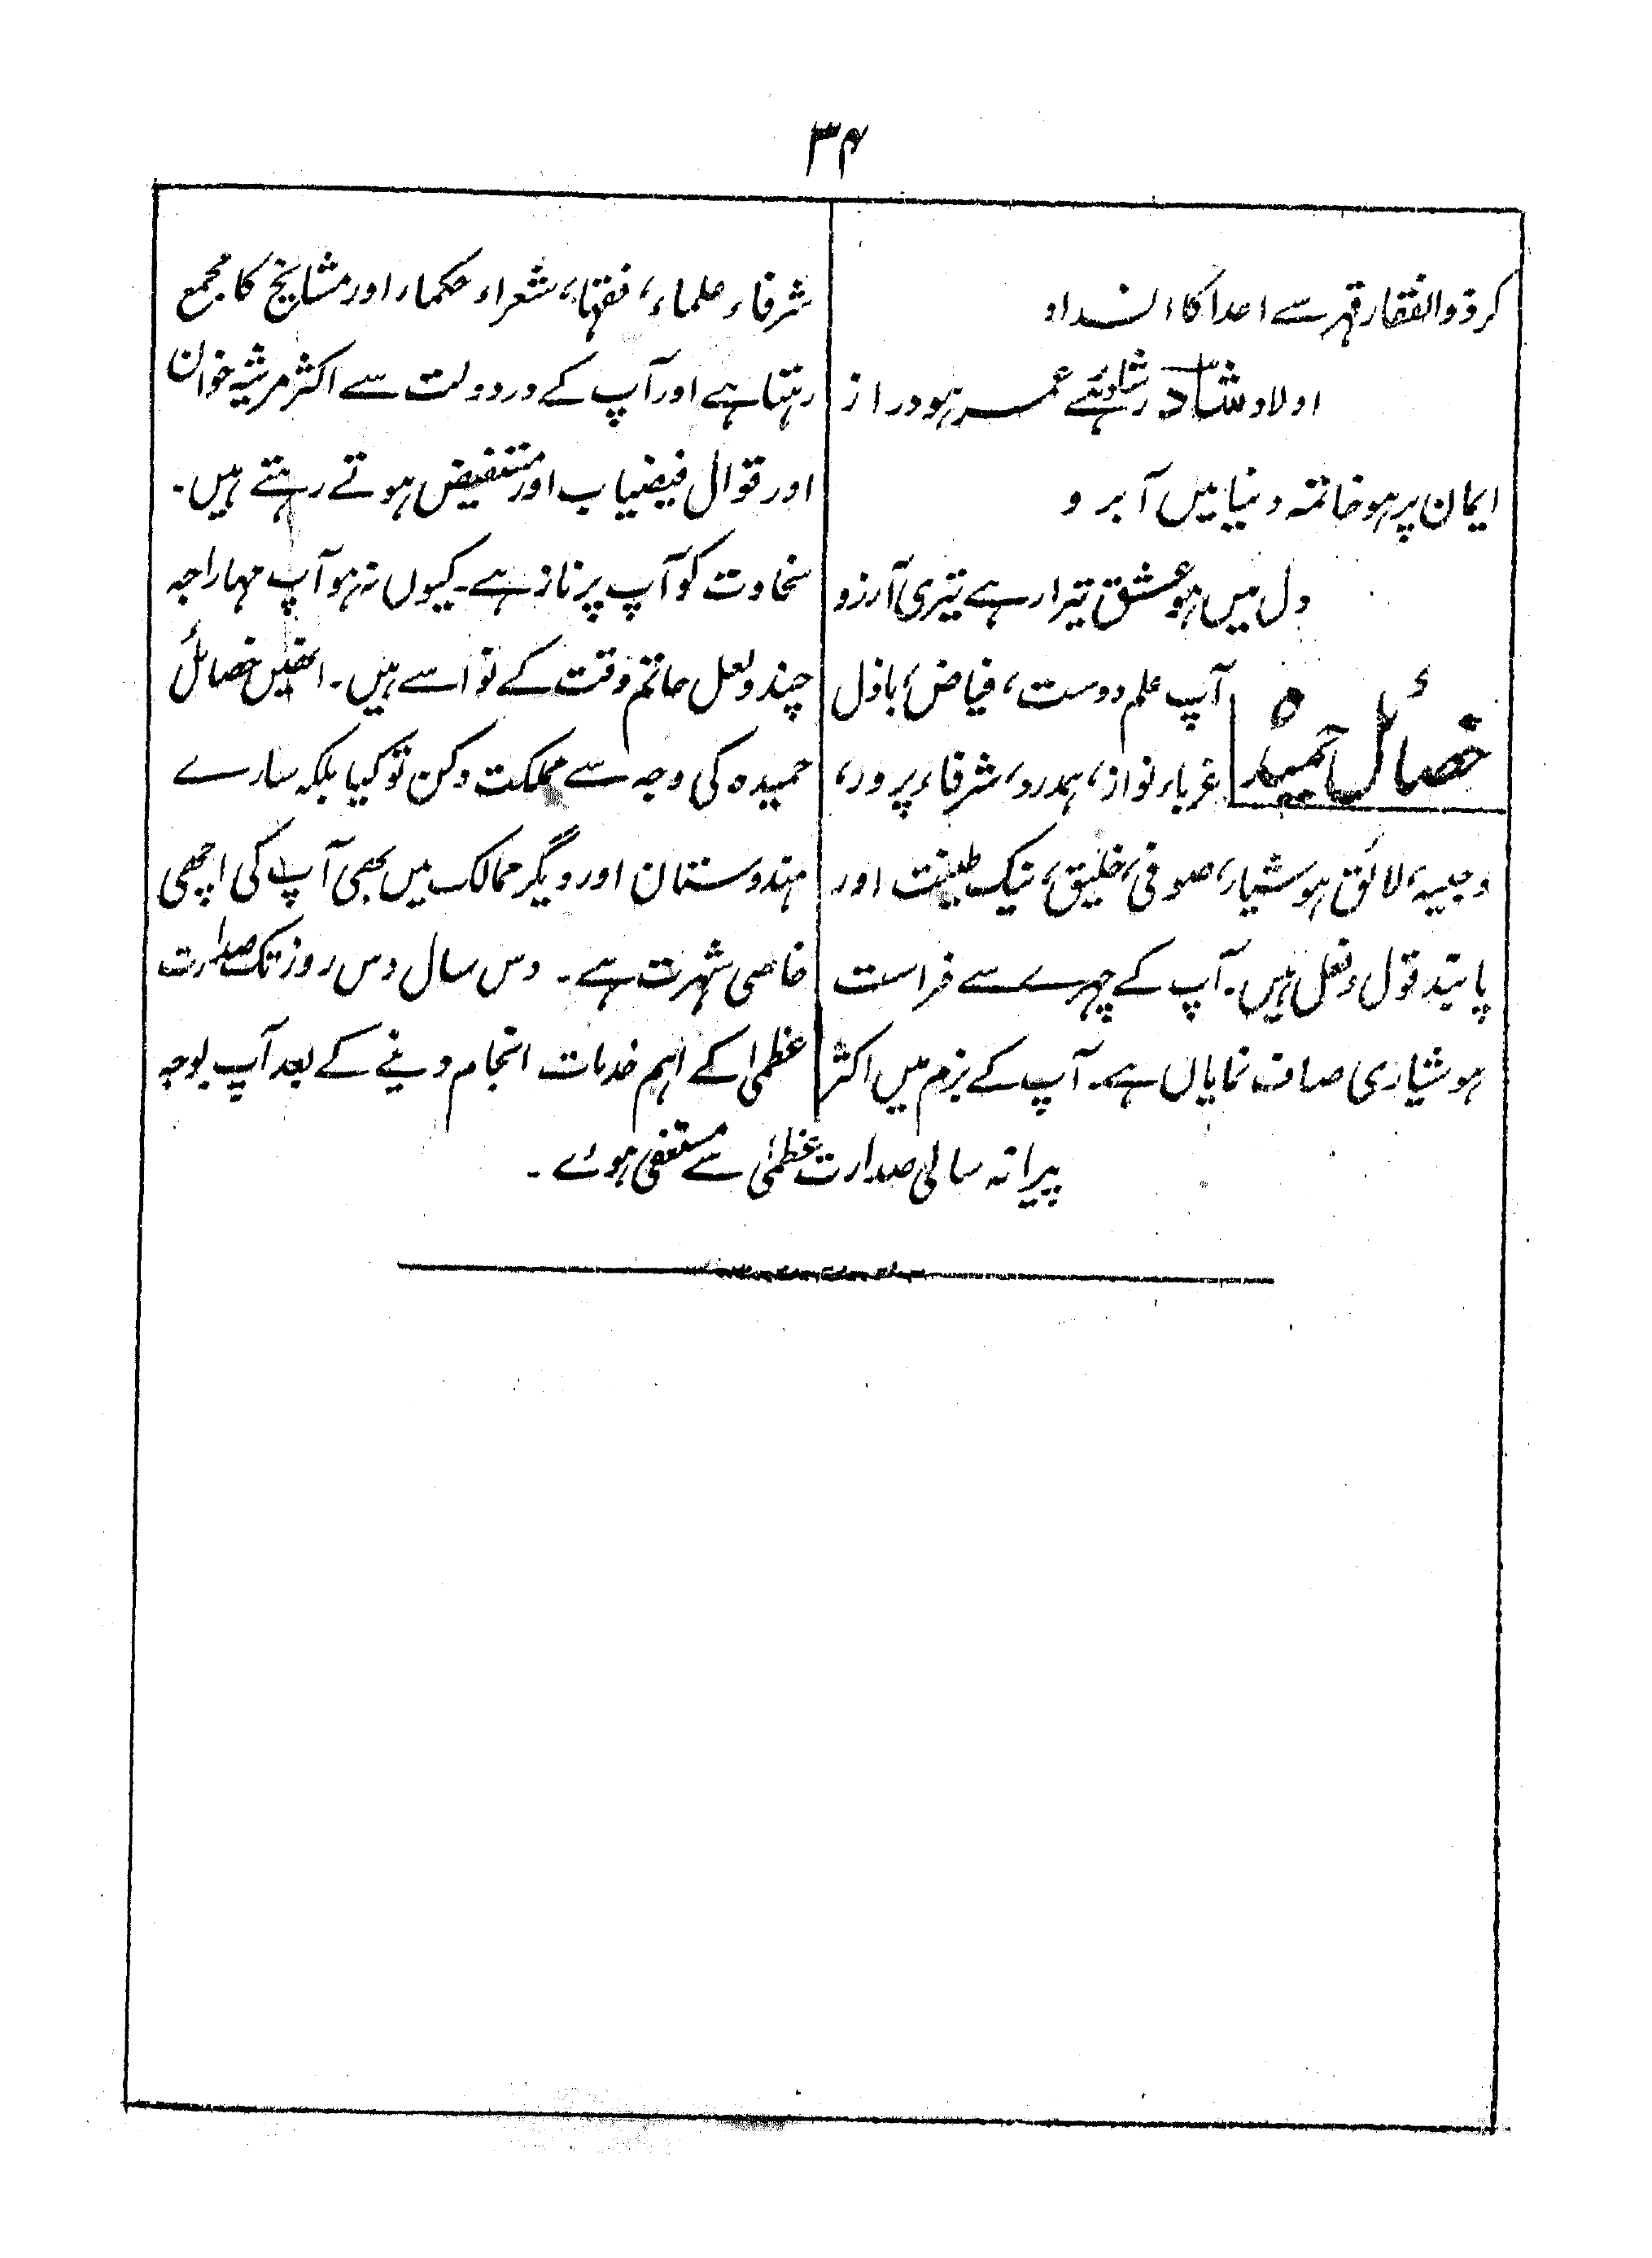 ۳۴
کر ذوالفقار قہر سے اعدا کا انسداد
اولاد شاد شاد رہے عمر ہو دراز
ایمان پر ہو خاتمہ دنیا میں آبرو
دل میں ہو عشق تیرا رہے تیری آرزو
خصائل حمیدہ
آپ علم دوست، فیاض، باذل
غرباء نواز، ہمدرد، شرفاء پرور،
وجیہ، لائق ہوشیار، صوفی، خلیق، نیک طینت اور
پابند قول و فعل ہیں۔ آپ کے چہرے سے فراست
ہوشیاری صاف نمایاں ہے۔ آپ کے بزم میں اکثر
شرفاء علماء، فقہا، شعراء حکماء اور مشایخ کا مجمع
رہتا ہے اور آپ کے در دولت سے اکثر مرثیہ خوان
اور قوال فیضیاب اور مستفیض ہوتے رہتے ہیں۔
سخاوت کو آپ پر ناز ہے۔ کیوں نہ ہو آپ مہاراجہ
چندو لعل حاتم وقت کے نواسے ہیں۔ انھیں خصائل
حمیدہ کی وجہ سے مملکت دکن تو کیا بلکہ سارے
ہندوستان اور دیگر ممالک میں بھی آپ کی اچھی
خاصی شہرت ہے۔ دس سال دس روز تک صدارت
عظمیٰ کے اہم خدمات انجام دینے کے بعد آپ بوجہ
پیرانہ سالی صدارت عظمیٰ سے مستعفی ہوئے۔